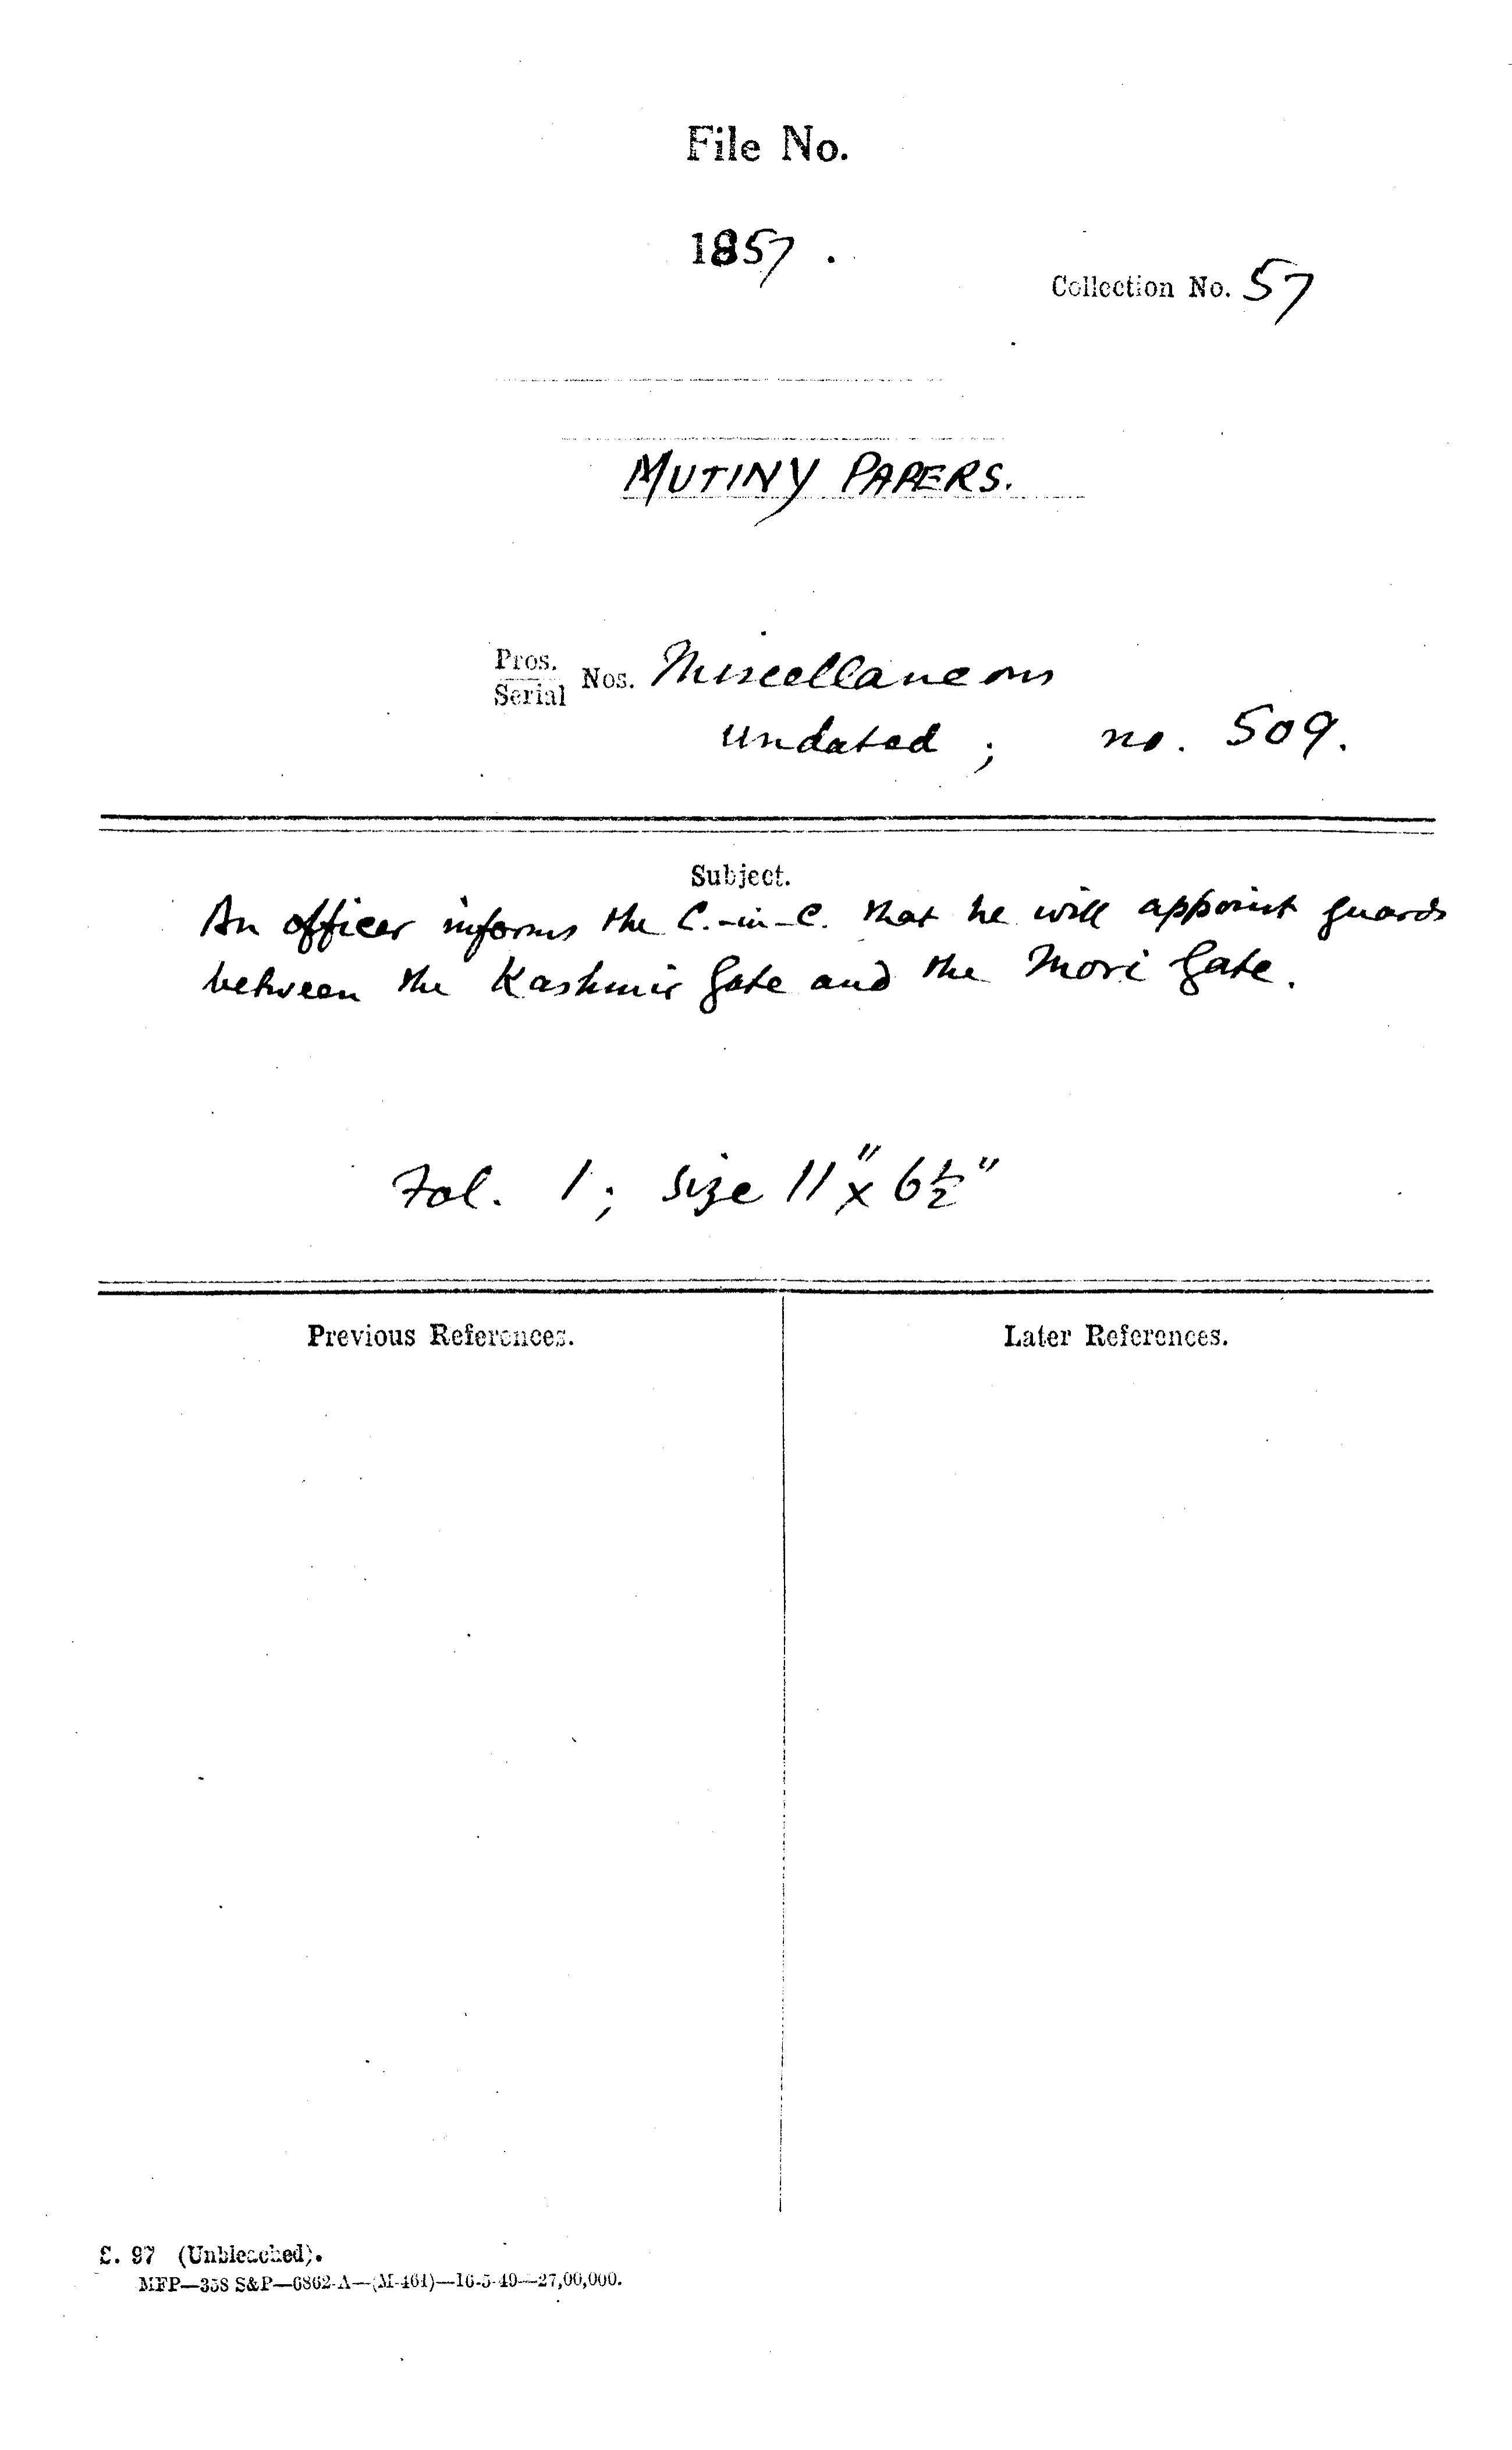 File No.
1857 .
Collection No. 57
MUTINY PAPERS.
Pros.
Serial Nos. Miscellaneous
undated ; no. 509.
Subject.
An officer informs the C.-in-C. that he will appoint guards
between the Kashmir Gate and the Mori Gate.
Fol. 1 ; size 11" x 6½"
Previous References.
Later References.
S. 97 (Unbleached).
MFP—358 S&P—6862-A—(M-461)—16-5-49—27,00,000.